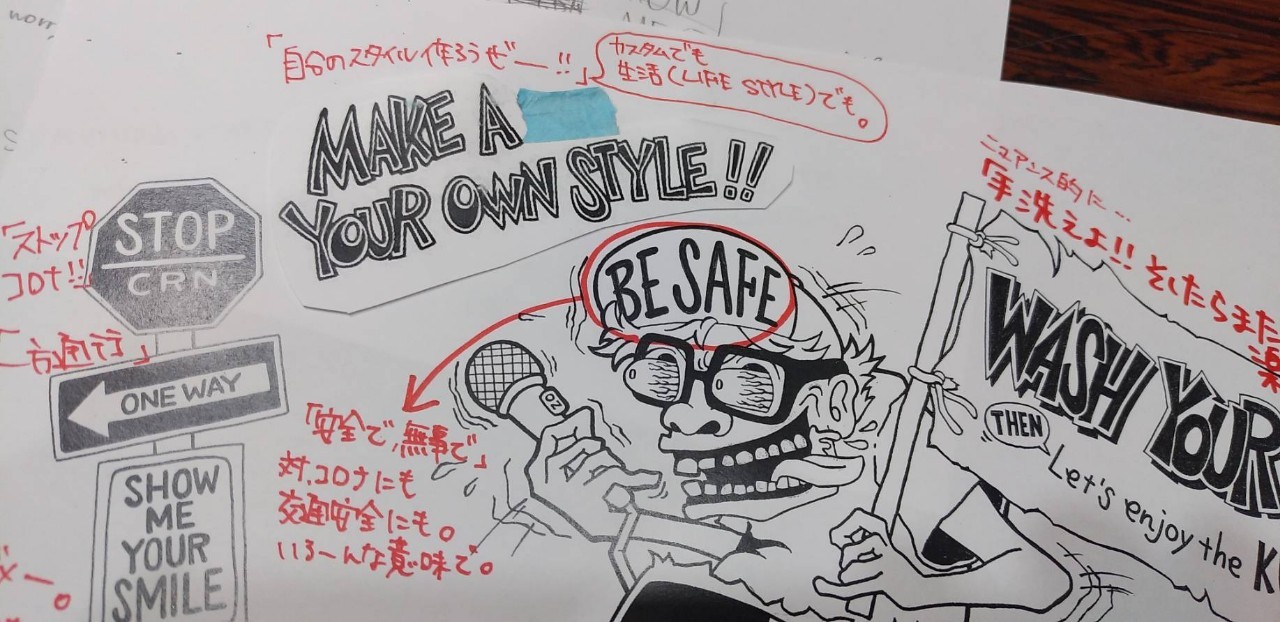 「自分のスタイル作ろうぜー!!」
カスタムでも
生活(LIFE STYLE)でも。
MAKE A
YOUR OWN STYLE!!
「ストップ
コロナ!!
STOP
CRN
「一方通行」
ONE WAY
SHOW
ME
YOUR
SMILE
BE SAFE
「安全で、無事で」
対、コロナにも
交通安全にも。
いろーんな意味で。
ニュアンス的に…
「手洗えよ!! そしたらまた
楽
WASH YOUR
THEN
Let's enjoy the